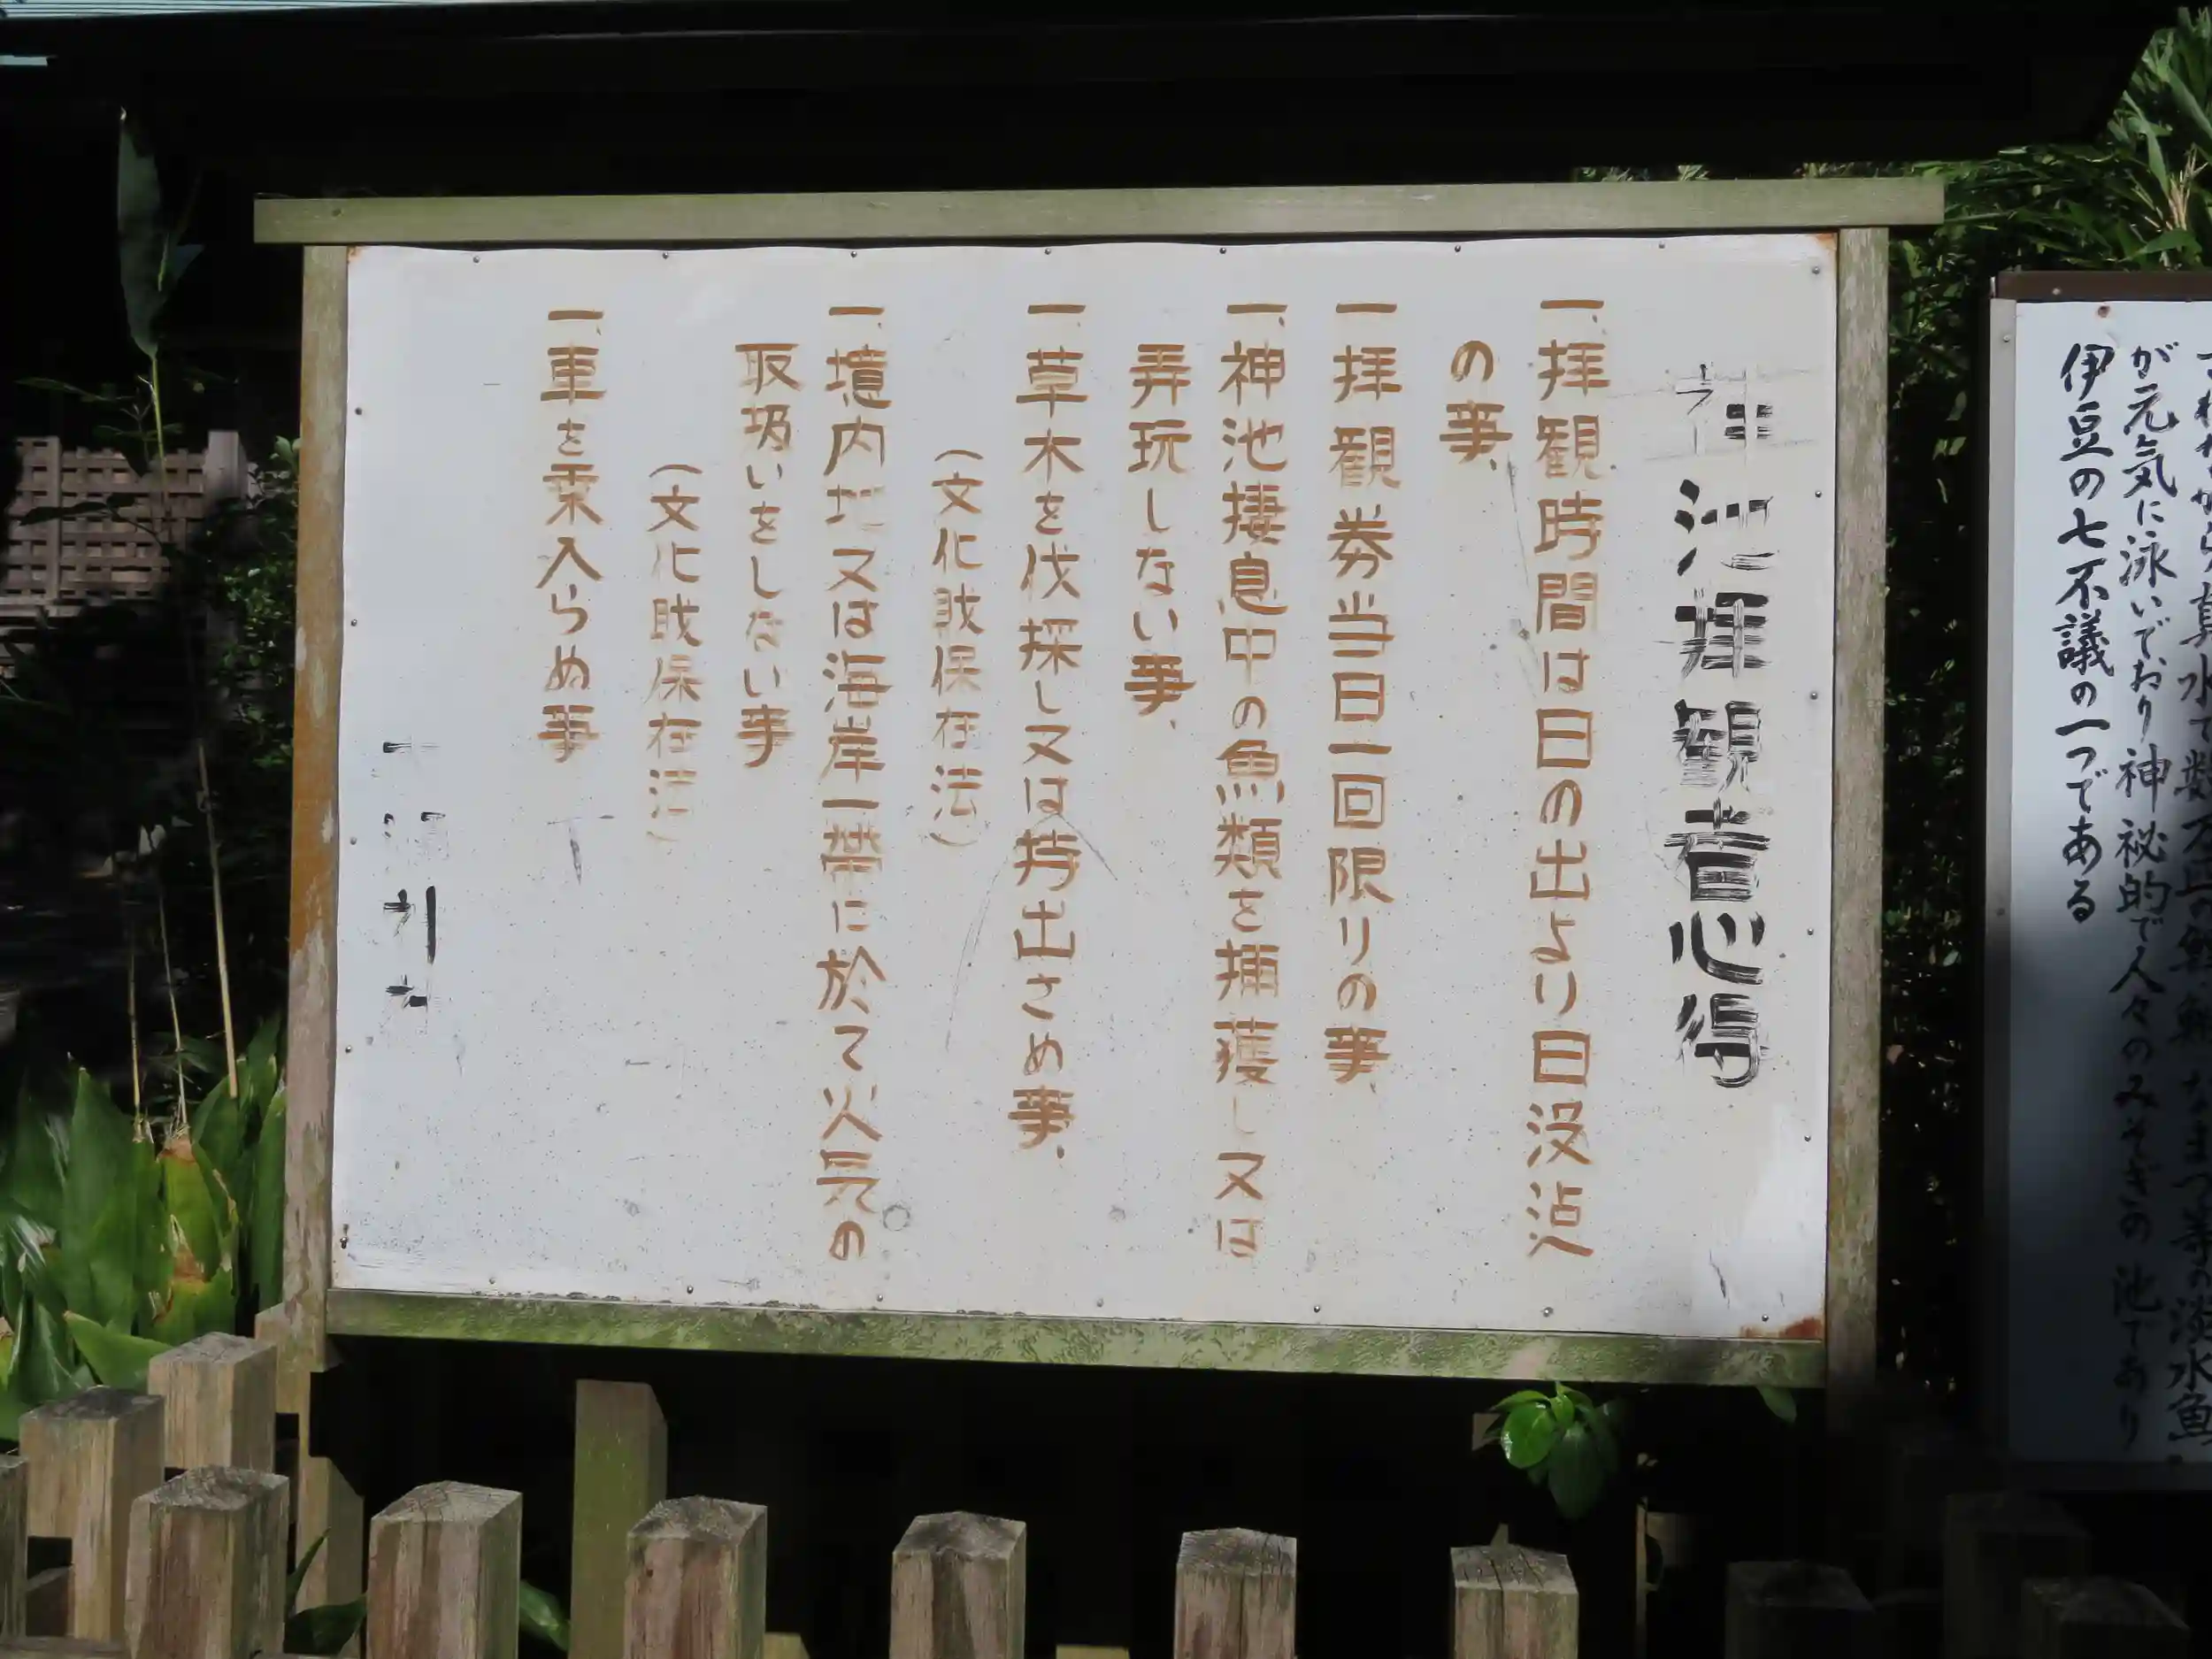 神池拝観者心得
一、拝観時間は日の出より日没迠
の事、
一、拝観券当日一回限りの事、
一、神池捿息中の魚類を捕獲し又は
弄玩しない事、
一、草木を伐採し又は持出さぬ事、
（文化財保存法）
一、境内地又は海岸一帯に於て火気の
取扱いをしない事
（文化財保存法）
一、車を乗入らぬ事
数万匹の
なまづ等の淡水魚
が元気に泳いでおり神秘的で人々のみそぎの池であり
伊豆の七不議の一つである